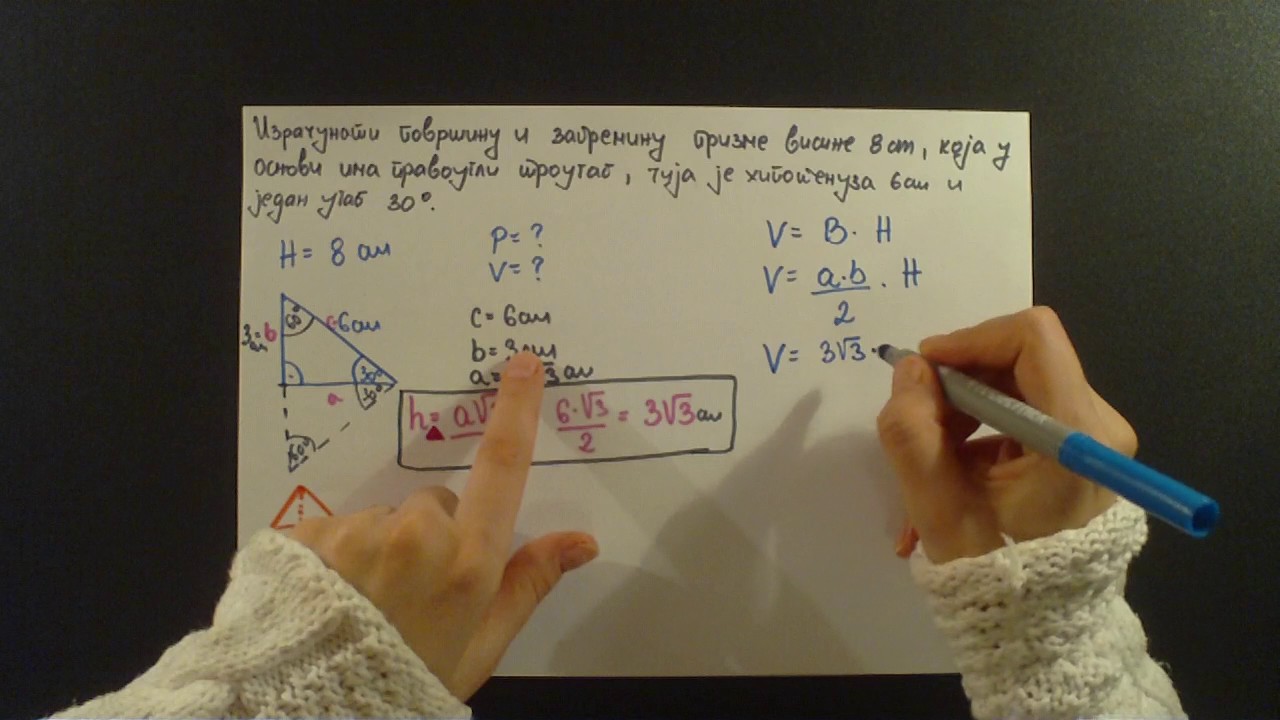 Израчунати површину и запремину призме висине 8 cm, која у
основи има правоугли троугао, чија је хипотенуза 6 cm и
један угао 30°.
H = 8 cm
P = ?
V = ?
c = 6 cm
b = 3 cm
a = √3 cm
60°
c=6cm
3cm=b
30°
30°
a
60°
h = a√ 6·√3/2 = 3√3 cm
V = B · H
V = a·b/2 · H
V = 3√3 ·